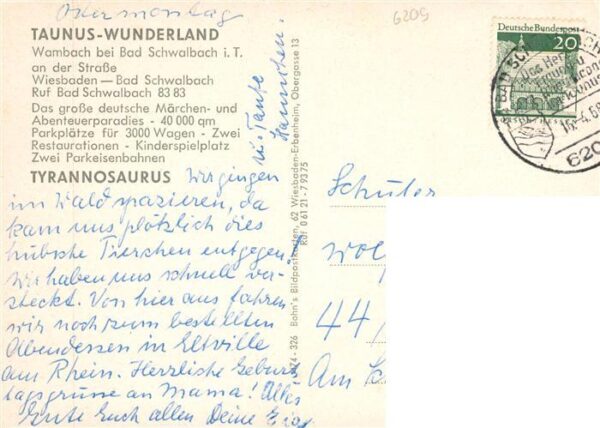 Ostermontag
6209
TAUNUS-WUNDERLAND
Wambach bei Bad Schwalbach i. T.
an der Straße
Wiesbaden — Bad Schwalbach
Ruf Bad Schwalbach 83 83
Das große deutsche Märchen- und
Abenteuerparadies - 40 000 qm
Parkplätze für 3000 Wagen - Zwei
Restaurationen - Kinderspielplatz
Zwei Parkeisenbahnen
TYRANNOSAURUS
Wir gingen
im Wald spazieren, da
kam uns plötzlich dies
hübsche Tierchen entgegen
Wir haben uns schnell ver-
steckt. Von hier aus fahren
wir noch zum bestellten
Abendessen in Eltville
am Rhein. Herzliche Geburt
tagsgrüsse an Mama! Alles
Gute Euch allen Deine
u. Tante
Hannchen.
U74 - 326 Bohn's Bildpostkarten, 62 Wiesbaden-Erbenheim, Obergasse 13
Ruf 0 61 21 - 7 93 75
Deutsche Bundespost
20
BAD SCH
620
Schüler
44/
Am